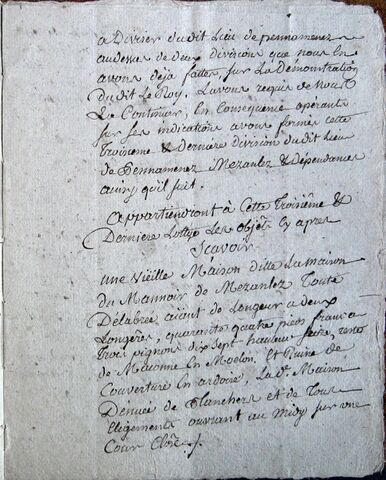 a Diviser dudit Lieu de pennamenez
audesus de deux divisions que nous En
avons deja faittes, sur La Démonstration
dudit Le Roy, L'avons requis de nous
Le Continuer, En Consequence operants
sur ses indications avons formés cette
Troisieme & derniere division dudit Lieu
de Pennamenez Mezanlez & dépendances
ainsy qu'il suit.
Appartiendront à Cette Troisiême &
Derniere Lottye Les objets Cy apres
Scavoir
une vieille Maison ditte La maison
du Mannoir de Mezanlez Toute
Delabrée aiant de Longeur a deux
Longeres, quarante quatre pieds franc a
Trois pignons dix sept hauteur seize,
de Maconne En Moelon, Et Ruine de
Couverture En ardoise, La de. Maison
Denuée de Planchers et de Tous
Eligements ouvrant au midy sur une
Cour Close /.